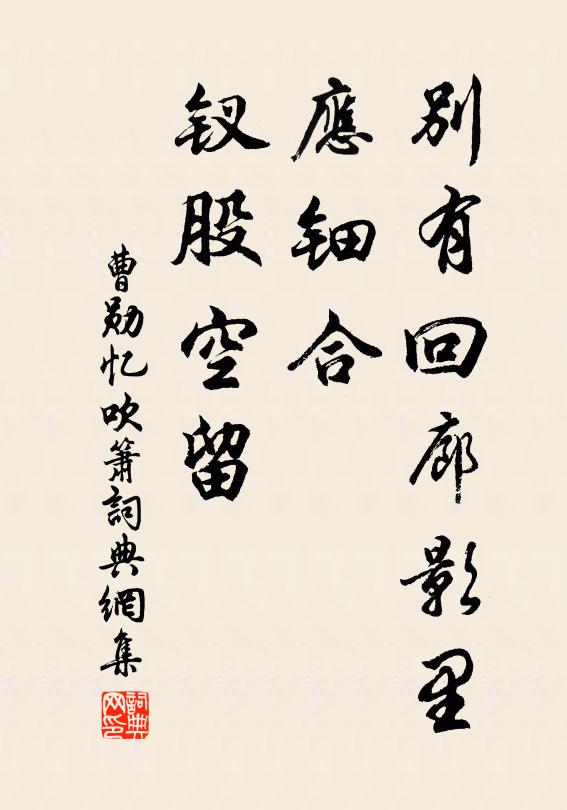 别有回廊影里
應钿合
钗股空留
曹勋忆吹箫詞典網集
詞典网印